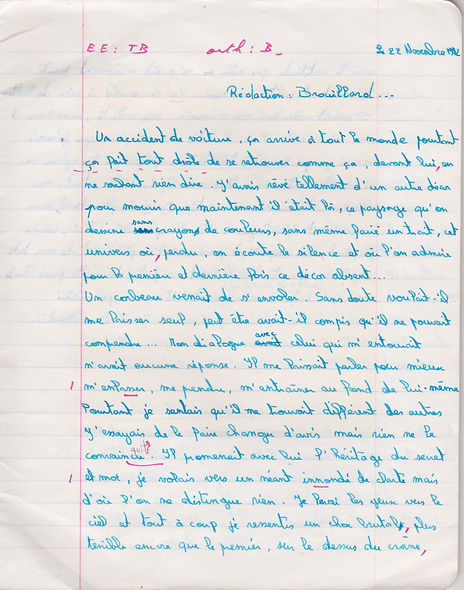 EE : TB orth : B_ Le 22 Novembre 1982
Rédaction : Brouillard...
Un accident de voiture, ça arrive à tout le monde pourtant
ça fait tout drôle de se retrouver comme ça, devant lui, en
ne sachant rien dire. J'avais rêvé tellement d'un autre décor
pour mourir que maintenant il était là, ce paysage qu'on
dessine sans crayons de couleurs, sans même faire un trait, cet
univers où, perdu, on écoute le silence et où l'on admire
pour la première et dernière fois ce décor absent...
Un corbeau venait de s'envoler. Sans doute voulait-il
me laisser seul, peut être avait-il compris qu'il ne pouvait
comprendre... Mon dialogue avec celui qui m'entourait
n'avait aucune réponse. Il me laissait parler pour mieux
m'enlasser, me perdre, m'entraîner au fond de lui-même
Pourtant je sentais qu'il me trouvait différent des autres
J'essayais de le faire changer d'avis mais rien ne le
convaincu. Il promenait avec lui l'héritage du secret
et moi, je volais vers un néant innondé de clarté mais
d'où l'on ne distingue rien. Je levai les yeux vers le
ciel et tout à coup je ressentis un choc brutal, plus
terrible encore que le premier, sur le dessus du crâne,